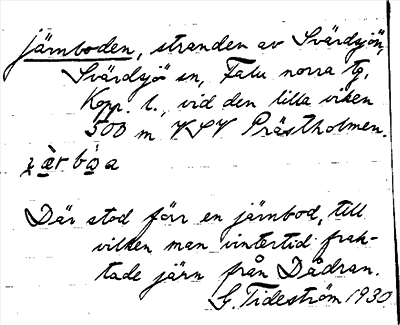 järnboden, stranden av Svärdsjön,
Svärdsjö sn, Falu norra tg,
Kopp. l., vid den lilla viken
500 m VSV Prästholmen.
Där stod förr en järnbod, till
vilken man vintertid frak-
tade järn från Dådran.
G. Tideström 1930